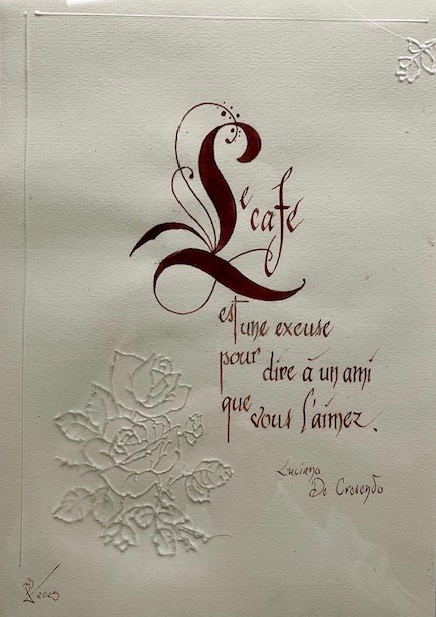 Le café
est une excuse
pour dire à un ami
que vous l'aimez.
Luciano
De Cresenδo
2025